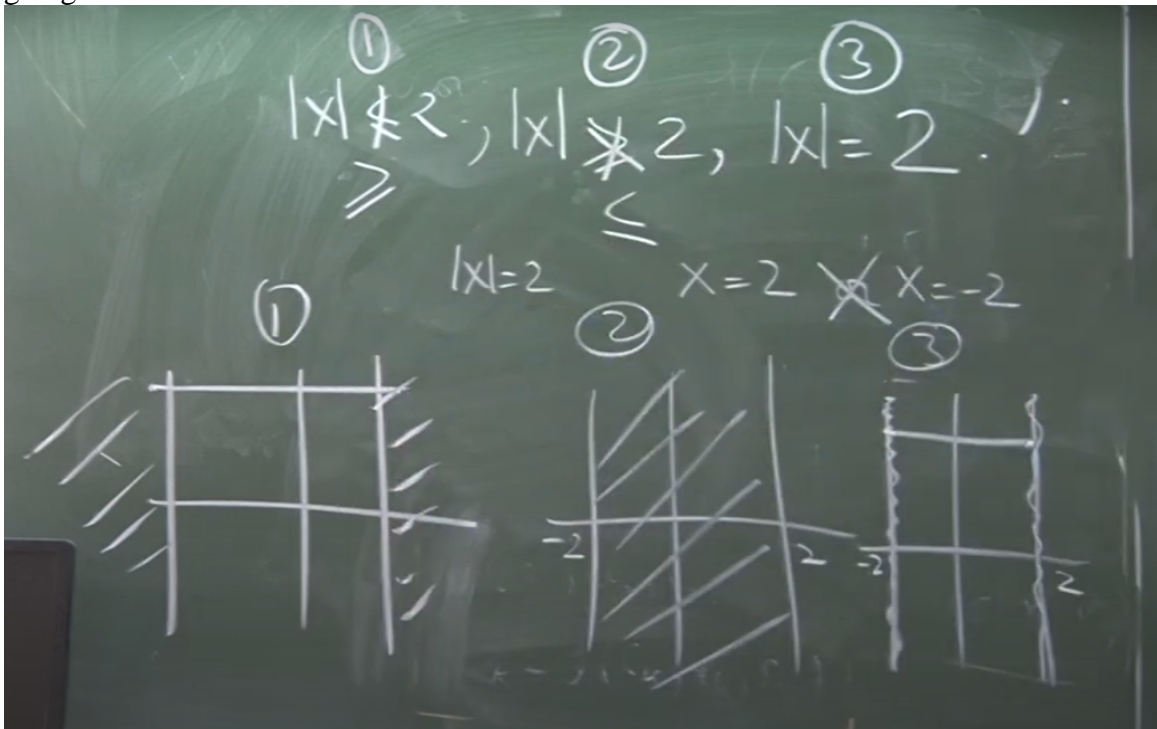 ① ② ③
|x| ≮ 2, |x| ≯ 2, |x| = 2.
≥ ≤
|x|=2 x=2 x=-2
① ② ③
-2 2 -2 2